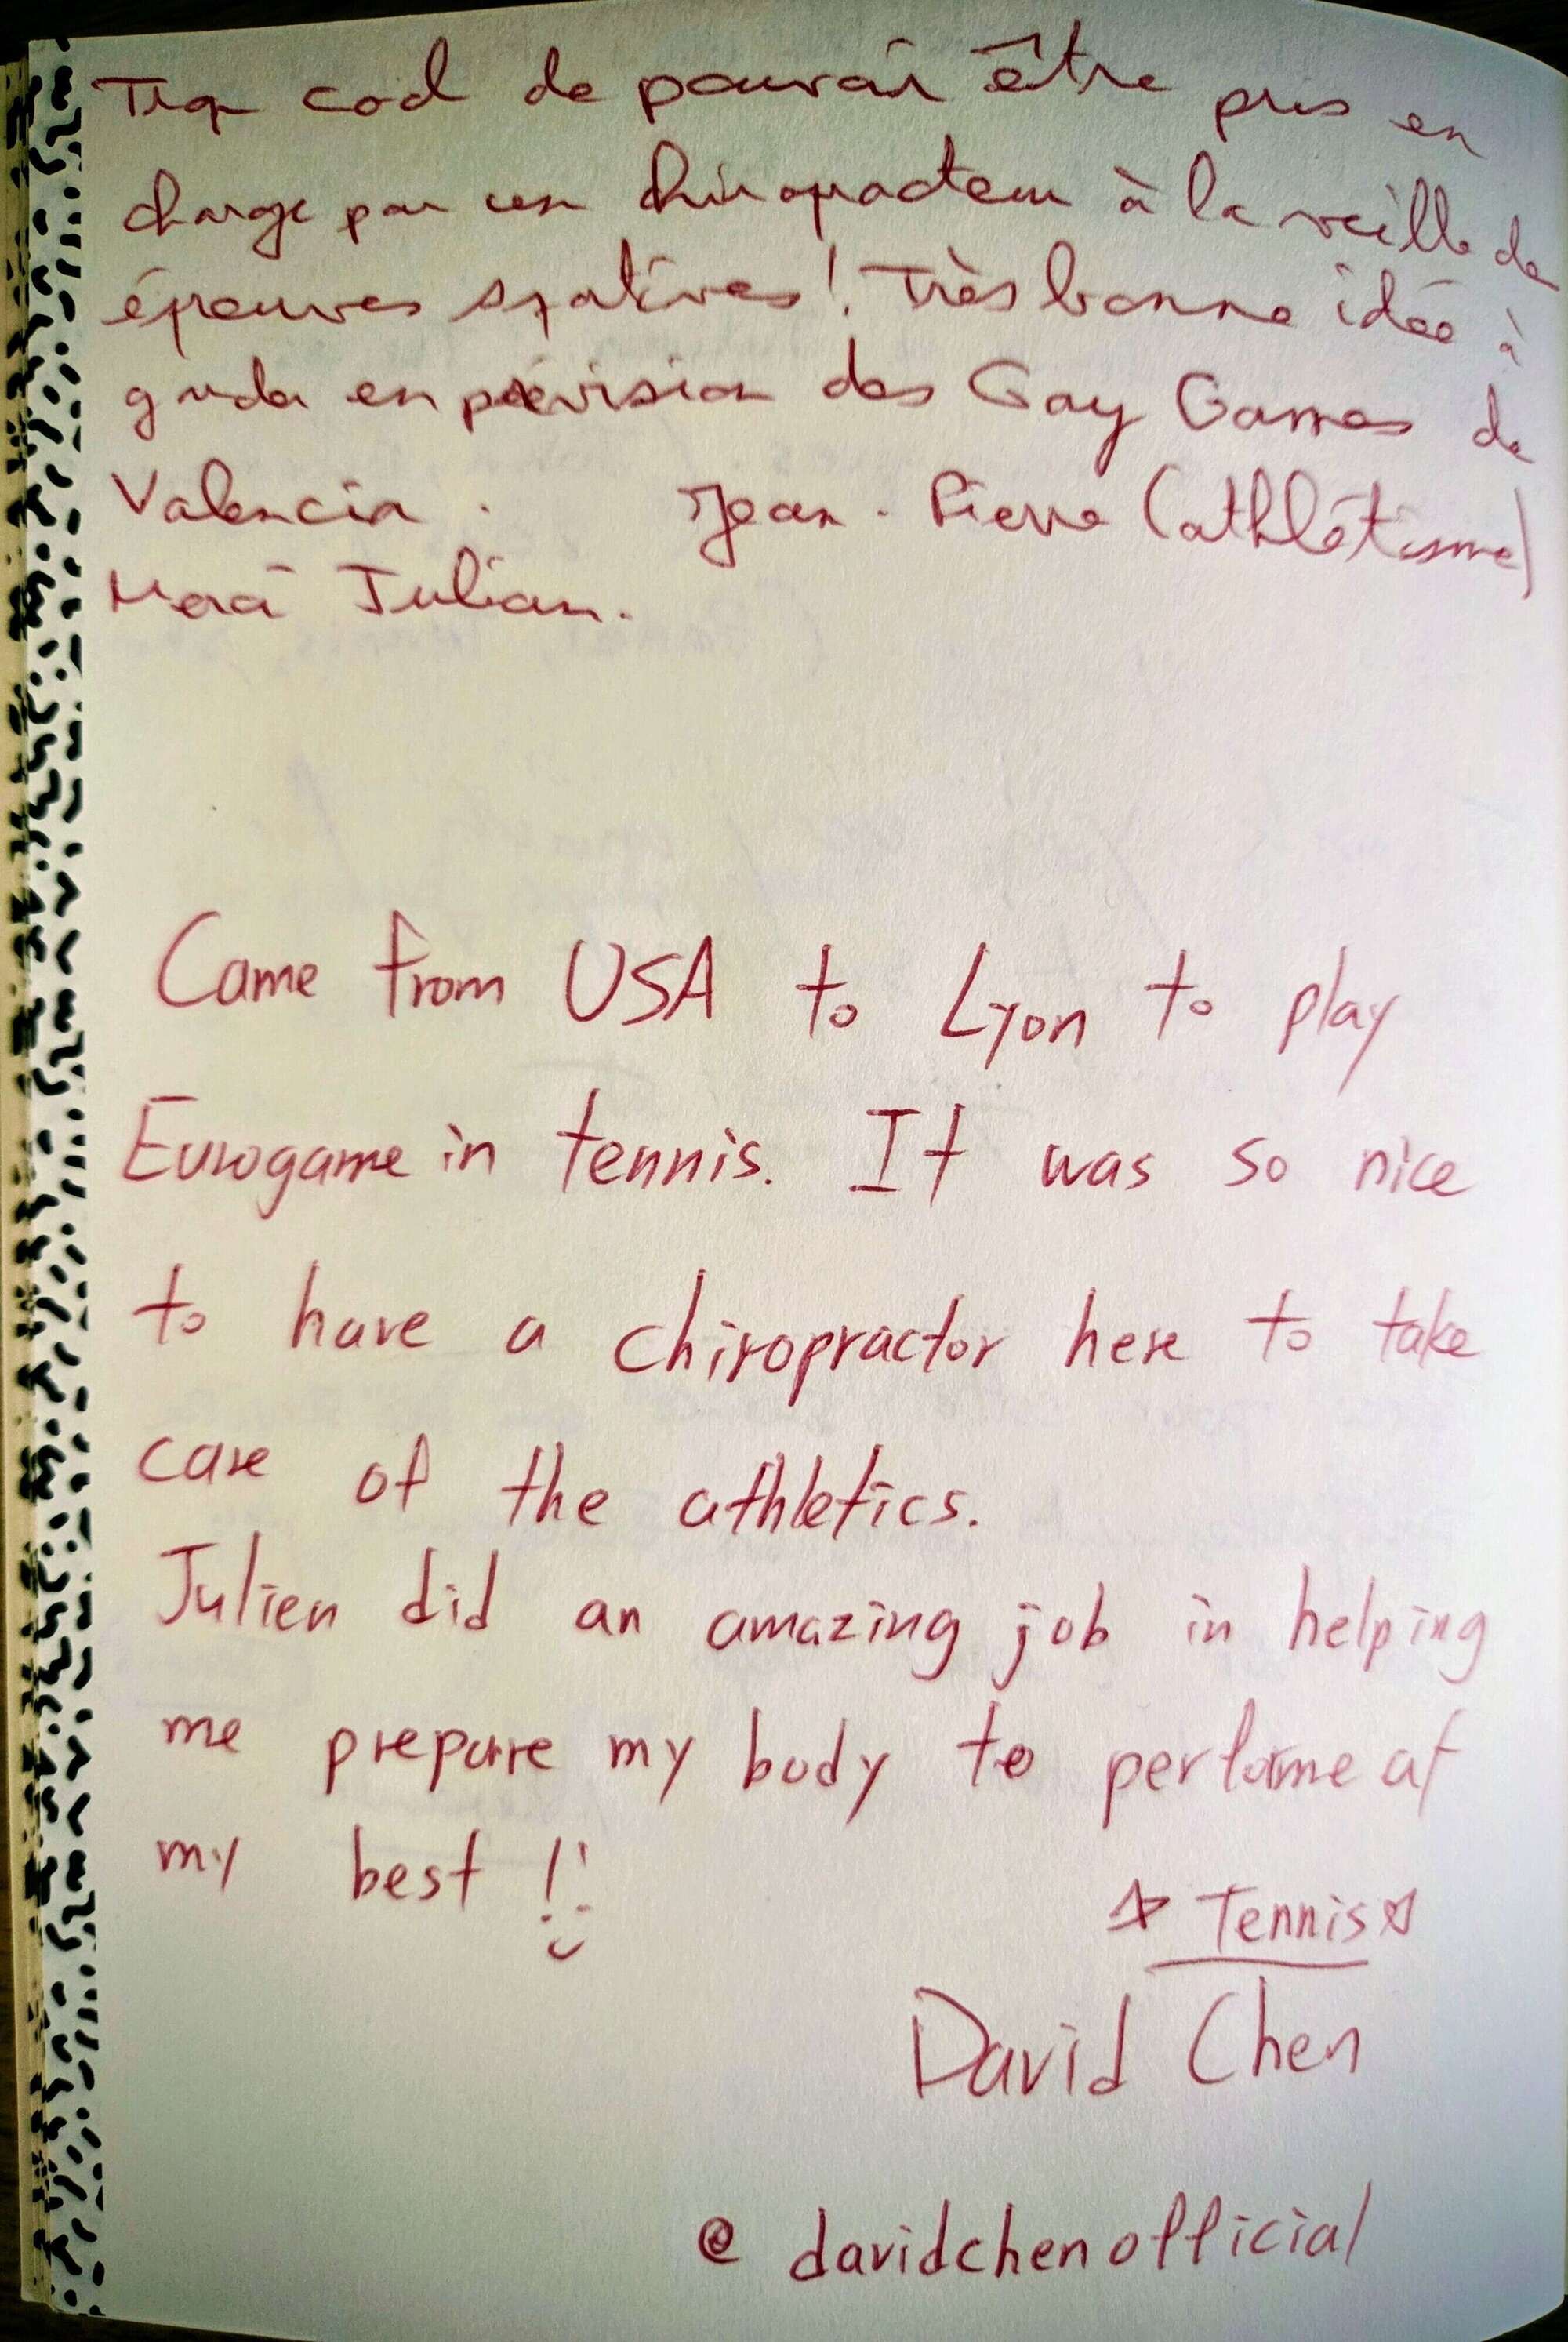 Trop cool de pouvoir être pris en
charge par un chiropracteur à la veille de
épreuves sportives ! Très bonne idée à
garder en prévision des Gay Games de
Valencia . Jean-Pierre (athlétisme)
Merci Julien.
Came from USA to Lyon to play
Eurogame in tennis. It was so nice
to have a chiropractor here to take
care of the athletics.
Julien did an amazing job in helping
me prepare my body to performe at
my best !!
☆ Tennis ☆
David Chen
@davidchenofficial